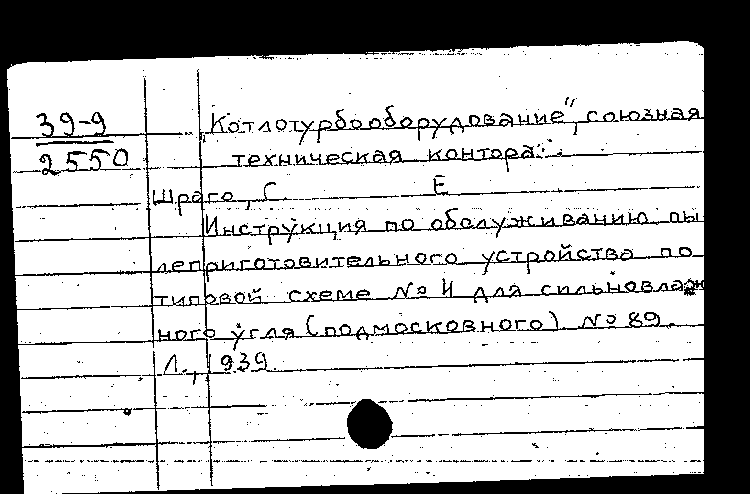 39-9
2550
„Котлотурбооборудование", союзная
техническая контора.
Шраго, С. Е
Инструкция по обслуживанию пы
леприготовительного устройства по
типовой схеме № 4 для сильновлаж
ного угля (подмосковного). № 89.
Л., 1939.